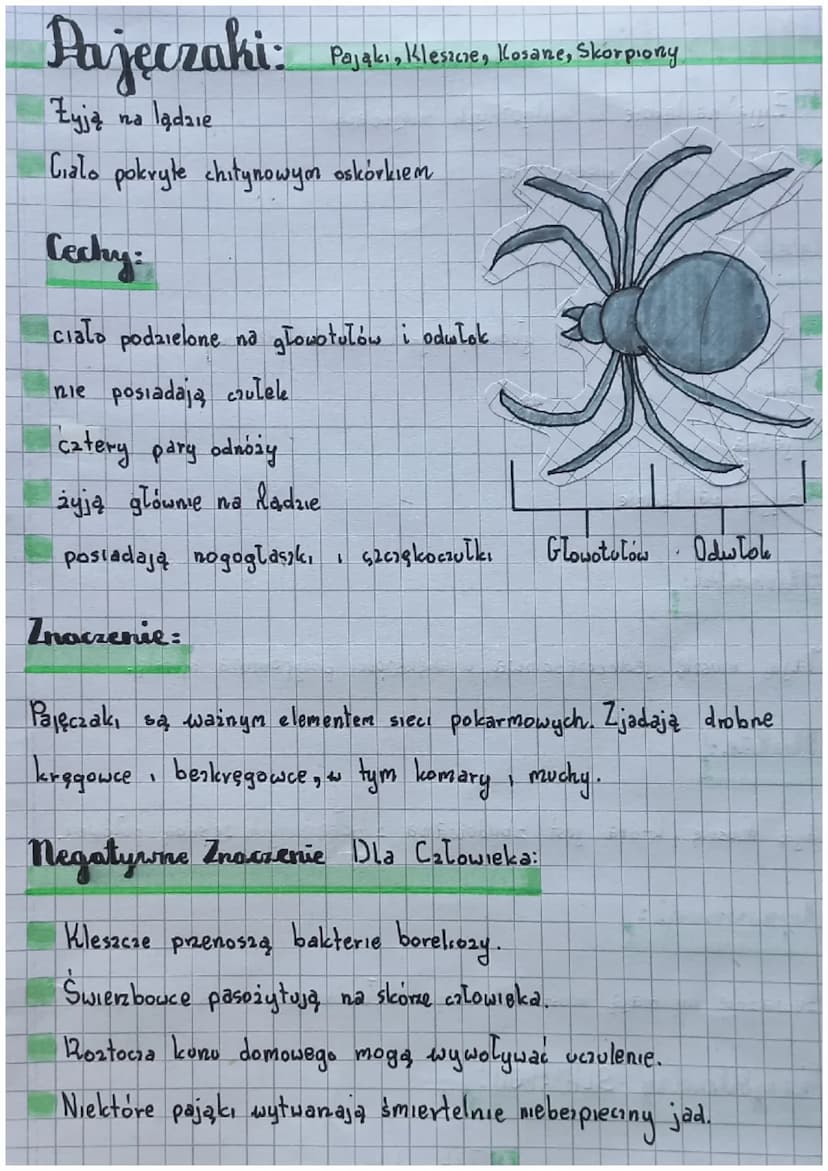 Pajęczaki: Pająki, Kleszcze, Kosarze, Skorpiony
Żyją na lądzie
Ciało pokryte chitynowym oskórkiem
Cechy:
ciało podzielone na głowotułów i odwłok
nie posiadają czułek
cztery pary odnóży
żyją głównie na lądzie
posiadają nogogłaszki i szczękoczułki
Głowotułów Odwłok
Znaczenie:
Pajęczaki są ważnym elementem sieci pokarmowych. Zjadają drobne
kręgowce i bezkręgowce, w tym komary i muchy.
Negatywne Znaczenie Dla Człowieka:
Kleszcze przenoszą bakterie boreliozy.
Świerzbowce pasożytują na skórze człowieka.
Roztocza kurzu domowego mogą wywoływać uczulenie.
Niektóre pająki wytwarzają śmiertelnie niebezpieczny jad.